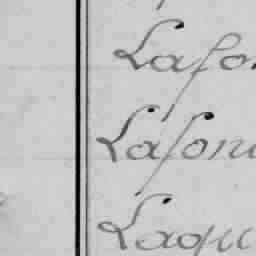 Lafon
Lafon
Laqu